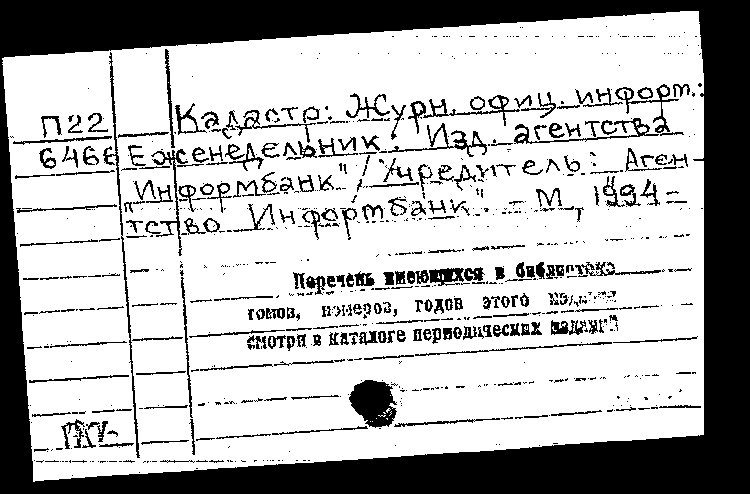 П22 Кадастр: Журн. офиц. информ.:
6466 Еженедельник. Изд. агентства
"Информбанк" / Учредитель: Аген-
тство "Информбанк". - М, 1994 =
Перечень имеющихся в библиотеке
томов, номеров, годов этого издания
смотри в каталоге периодических изданий